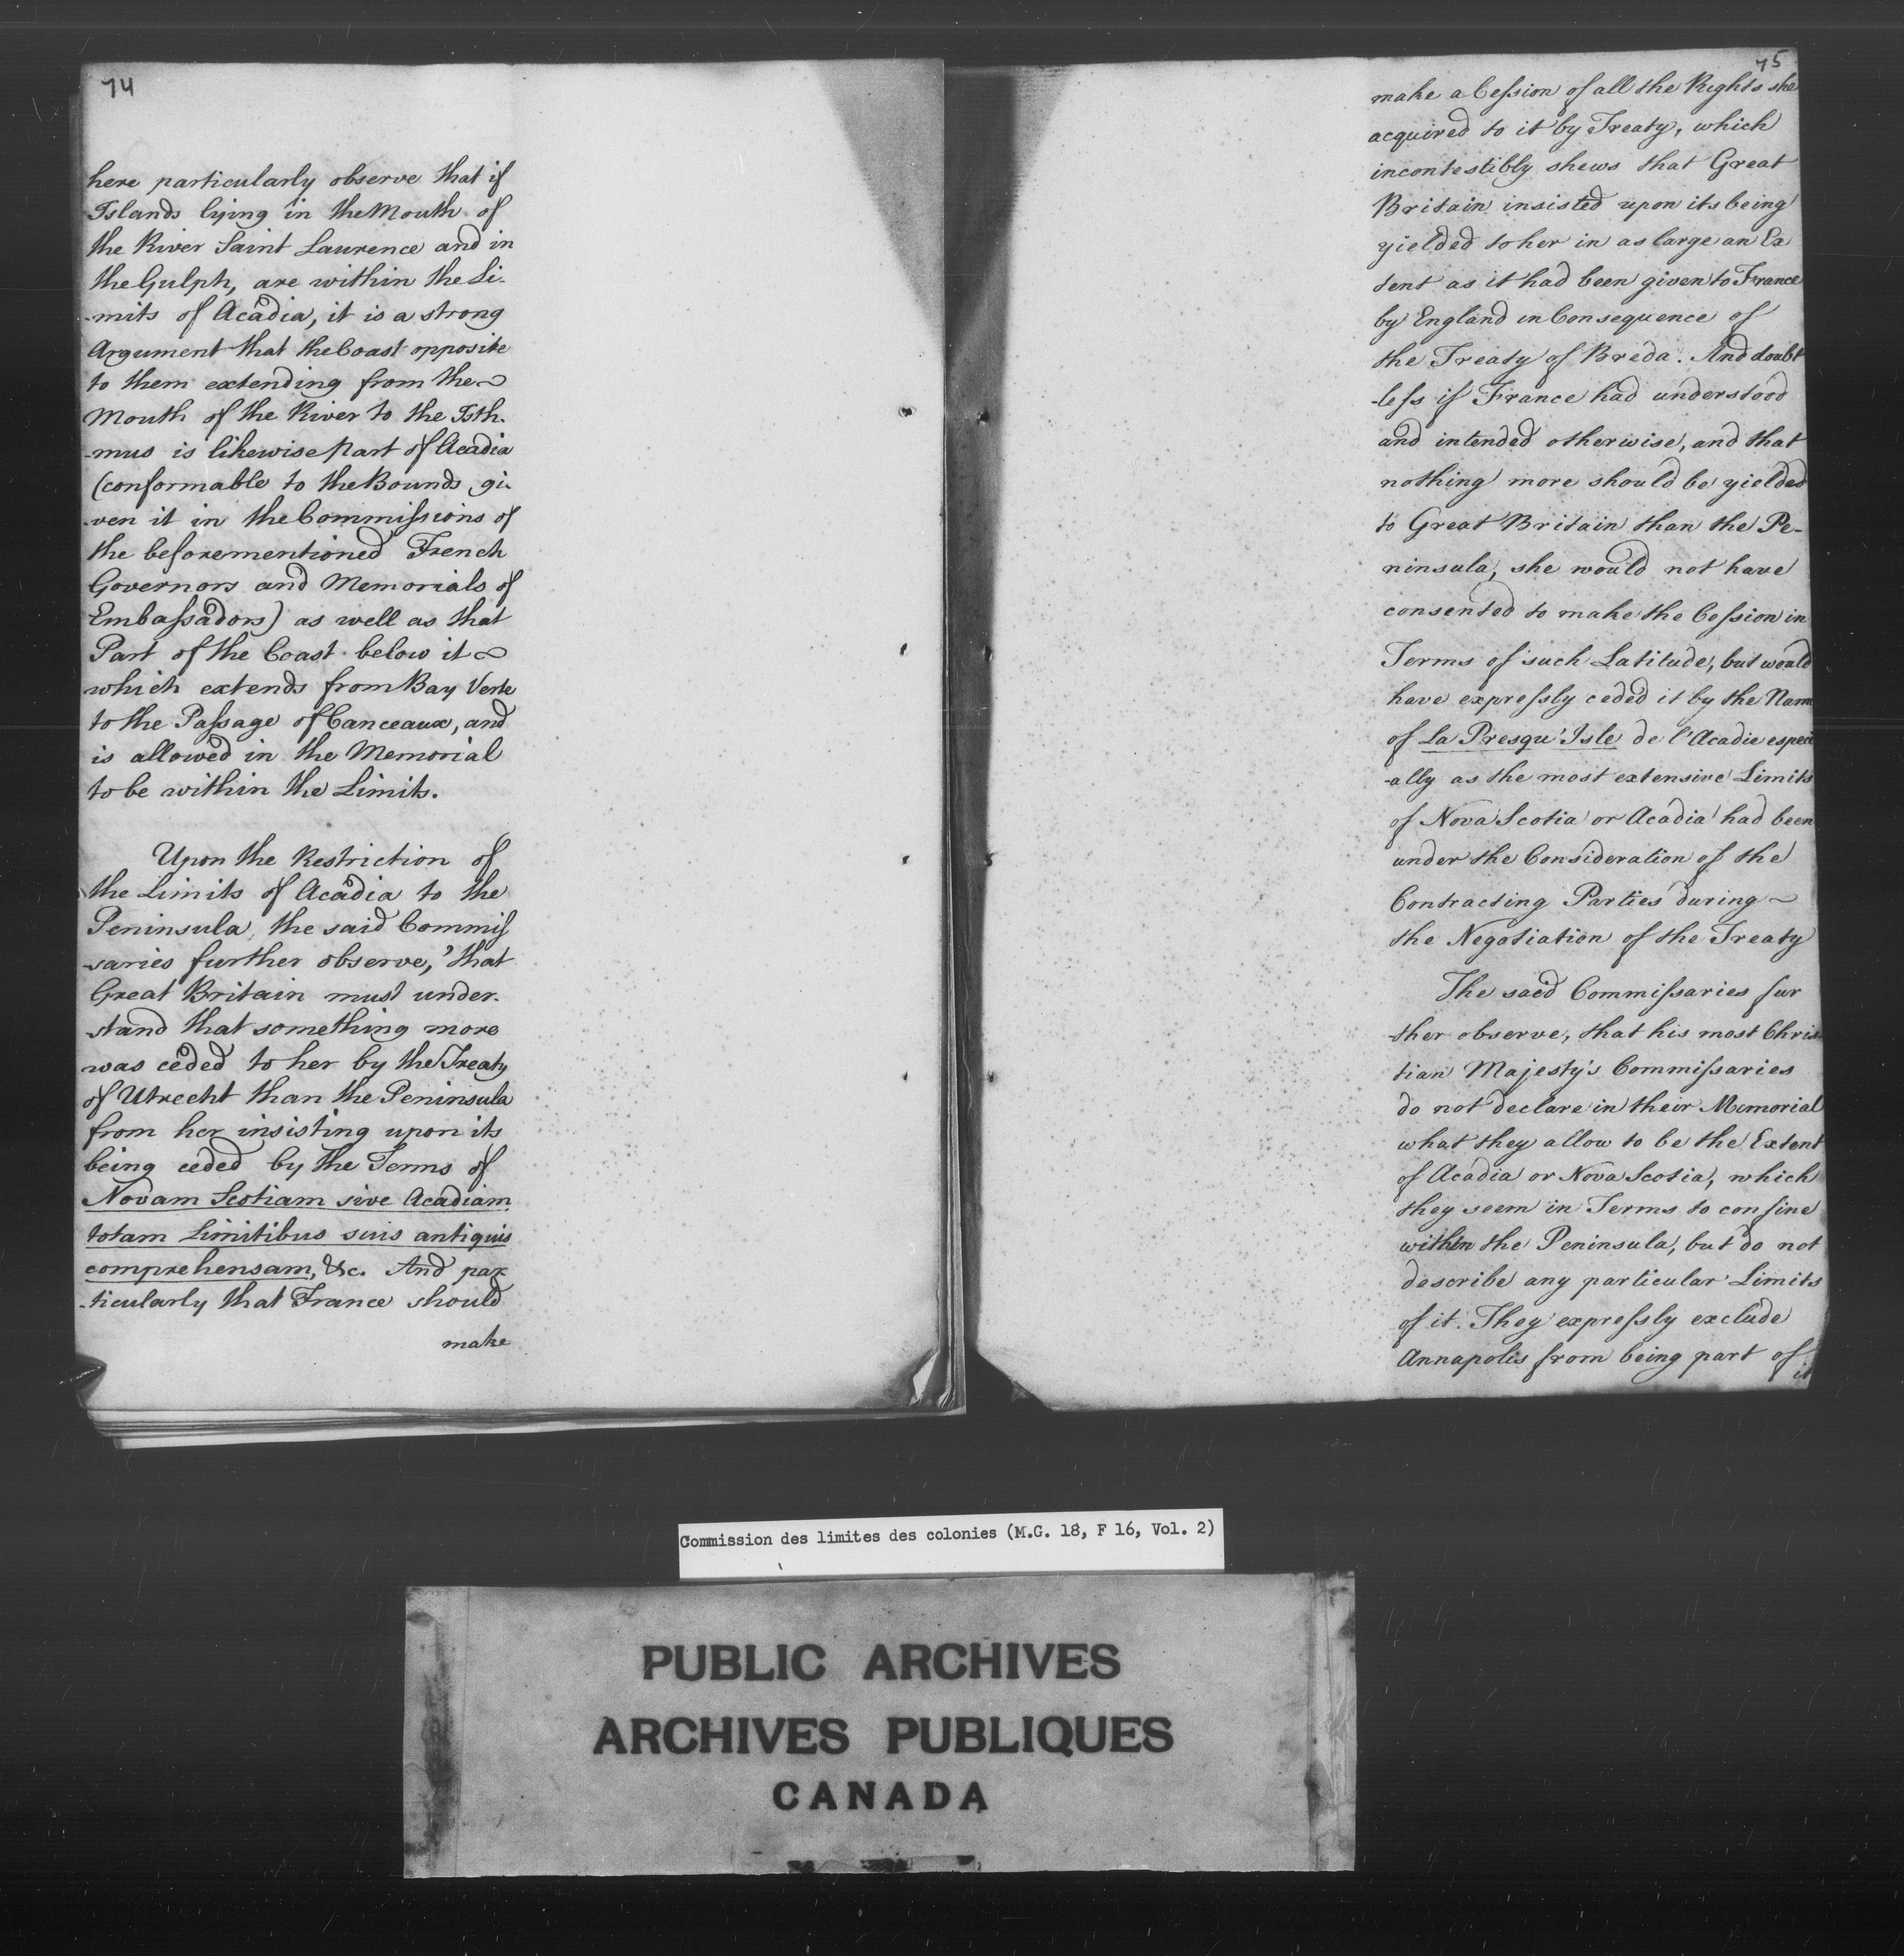 74
here particularly observe that if
Islands lying in the Mouth of
the River Saint Laurence and in
the Gulph, are within the Li-
-mits of Acadia, it is a strong
Argument that the Coast opposite
to them extending from the
Mouth of the River to the Isth-
-mus is likewise Part of Acadia
(conformable to the Bounds gi-
-ven it in the Commissions of
the beforementioned French
Governors and Memorials of
Embassadors) as well as that
Part of the Coast below it
which extends from Bay Verte
to the Passage of Canceaux, and
is allowed in the Memorial
to be within the Limits.
Upon the Restriction of
the Limits of Acadia to the
Peninsula, the said Commis
-saries further observe, that
Great Britain must under-
-stand that something more
was ceded to her by the Treaty
of Utrecht than the Peninsula
from her insisting upon its
being ceded by the Terms of
Novam Scotiam sive Acadiam
totam Limitibus suis antiquis
comprehensam, &c. And par
-ticularly that France should
make
75
make a Cession of all the Rights she
acquired to it by Treaty, which
incontestibly shews that Great
Britain insisted upon its being
yielded to her in as large an Ex
tent as it had been given to France
by England in Consequence of
the Treaty of Breda. And doubt
-less if France had understood
and intended otherwise, and that
nothing more should be yielded
to Great Britain than the Pe-
ninsula, she would not have
consented to make the Cession in
Terms of such Latitude, but would
have expressly ceded it by the Name
of La Presqu'Isle de l'Acadie especi
-ally as the most extensive Limits
of Nova Scotia or Acadia had been
under the Consideration of the
Contracting Parties during
the Negotiation of the Treaty
The said Commissaries fur
-ther observe, that his most Chris-
tian Majesty's Commissaries
do not declare in their Memorial
what they allow to be the Extent
of Acadia or Nova Scotia, which
they seem in Terms to confine
within the Peninsula, but do not
describe any particular Limits
of it. They expressly exclude
Annapolis from being part of
it
Commission des limites des colonies (M.G. 18, F 16, Vol. 2)
PUBLIC ARCHIVES
ARCHIVES PUBLIQUES
CANADA